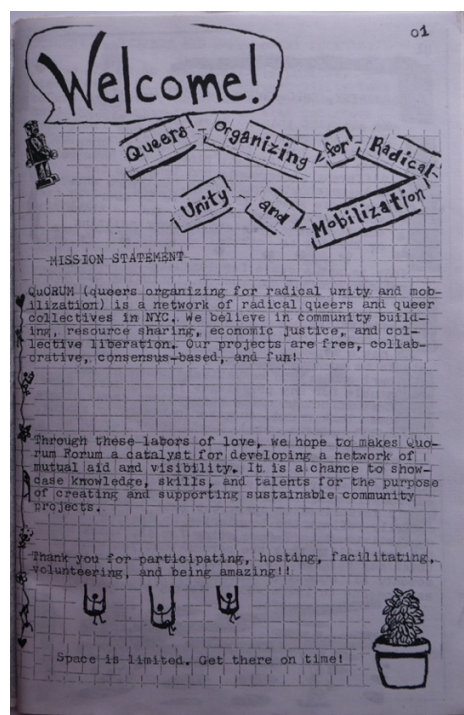 01
Welcome!
Queers Organizing for Radical
Unity and Mobilization
MISSION STATEMENT
QuORUM (queers organizing for radical unity and mob-
ilization) is a network of radical queers and queer
collectives in NYC. We believe in community build-
ing, resource sharing, economic justice, and col-
lective liberation. Our projects are free, collab-
orative, consensus-based, and fun!
Through these labors of love, we hope to makes Quo-
rum Forum a catalyst for developing a network of
mutual aid and visibility. It is a chance to show-
case knowledge, skills, and talents for the purpose
of creating and supporting sustainable community
projects.
Thank you for participating, hosting, facilitating,
volunteering, and being amazing!!
Space is limited. Get there on time!